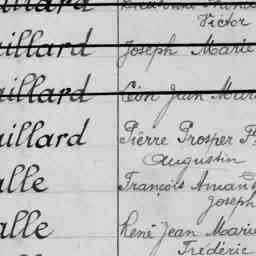 Victor
uillard Joseph Marie
uillard Léon Jean Mari
uillard Pierre Prosper
Augustin
alle François Aman
Joseph
alle René Jean Marie
Frédéric